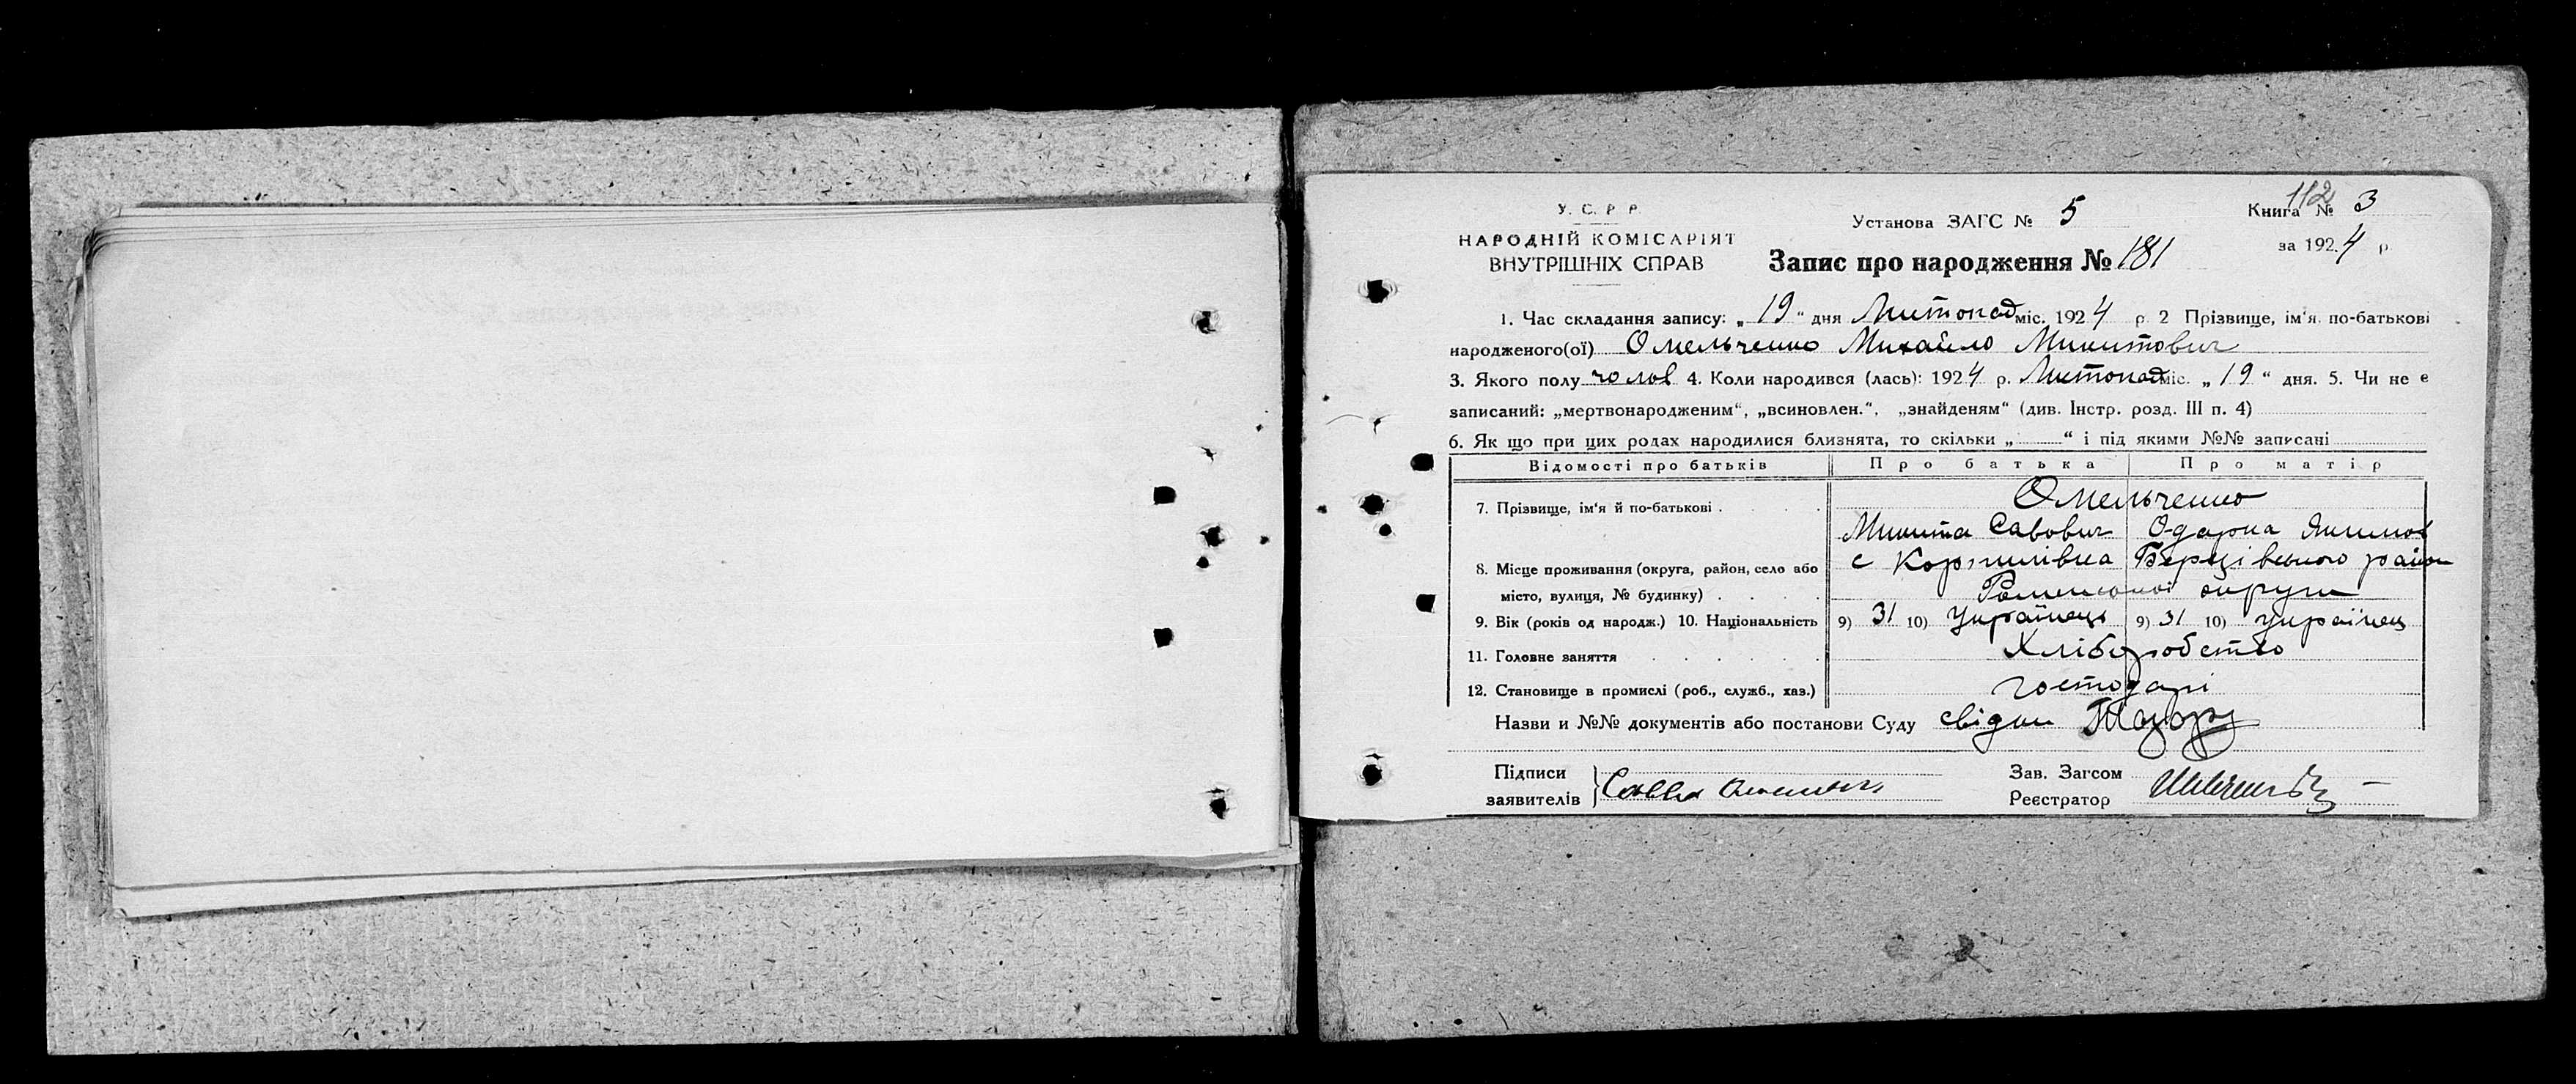 112
У. С. Р. Р.
Установа ЗАГС № 5
Книга № 3
НАРОДНІЙ КОМІСАРІЯТ
за 1924 р.
ВНУТРІШНІХ СПРАВ
Запис про народження № 181
1. Час складання запису: „ 19 “ дня Листопад міс. 1924 р. 2 Прізвище, ім'я по-батькові
народженого(ої) Омельченко Михайло Микитович
3. Якого полу чолов 4. Коли народився (лась): 1924 р. Листопад міс. „ 19 “ дня. 5. Чи не є
записаний: „мертвонародженим“, „всиновлен.“, „знайденям“ (див. Інстр. розд. III п. 4)
6. Як що при цих родах народилися близнята, то скільки „ “ і під якими №№ записані
Відомості про батьків Про батька Про матір
Омельченко
7. Прізвище, ім'я й по-батькові
Микита Савович Одарка Якимов
с Коржилівка Березівського район
8. Місце проживання (округа, район, село або
місто, вулиця, № будинку) Роменської округи
9. Вік (років од народж.) 10. Національність 9) 31 10) Українець 9) 31 10) українец
11. Головне заняття Хліборобство
12. Становище в промислі (роб., служб., хаз.) господарі
Назви и №№ документів або постанови Суду свідки
Підписи
заявителів Савва
Зав. Загсом
Реєстратор